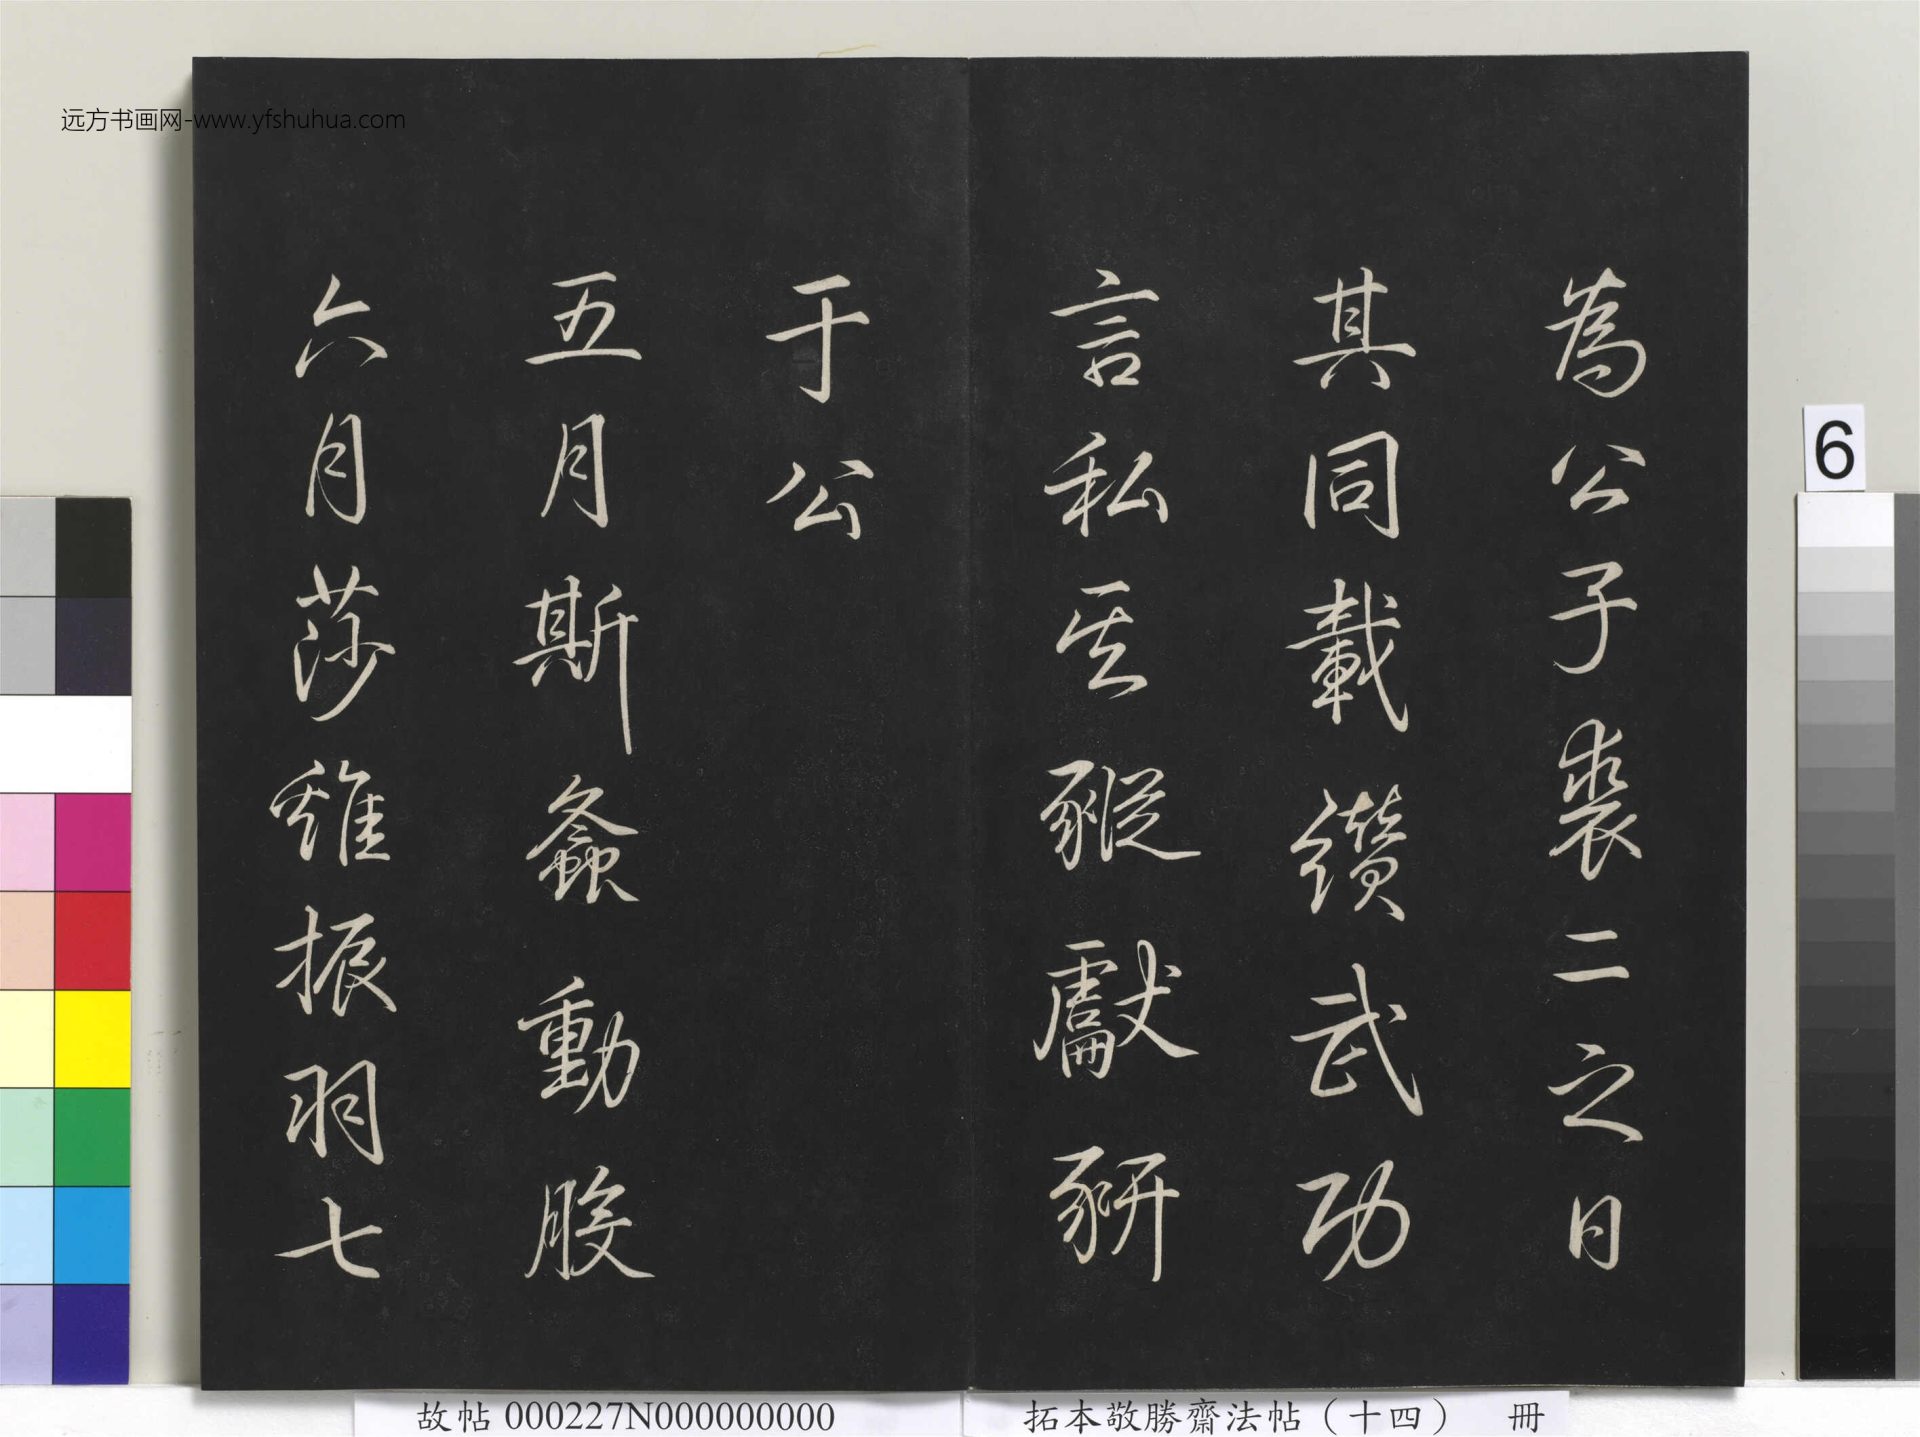 為公子裘二之日
其同載纘武功
言私其豵獻豜
于公
五月斯螽動股
六月莎雞振羽七
远方书画网-www.yfshuhua.com
6
故帖 000227N000000000
拓本敬勝齋法帖（十四） 冊